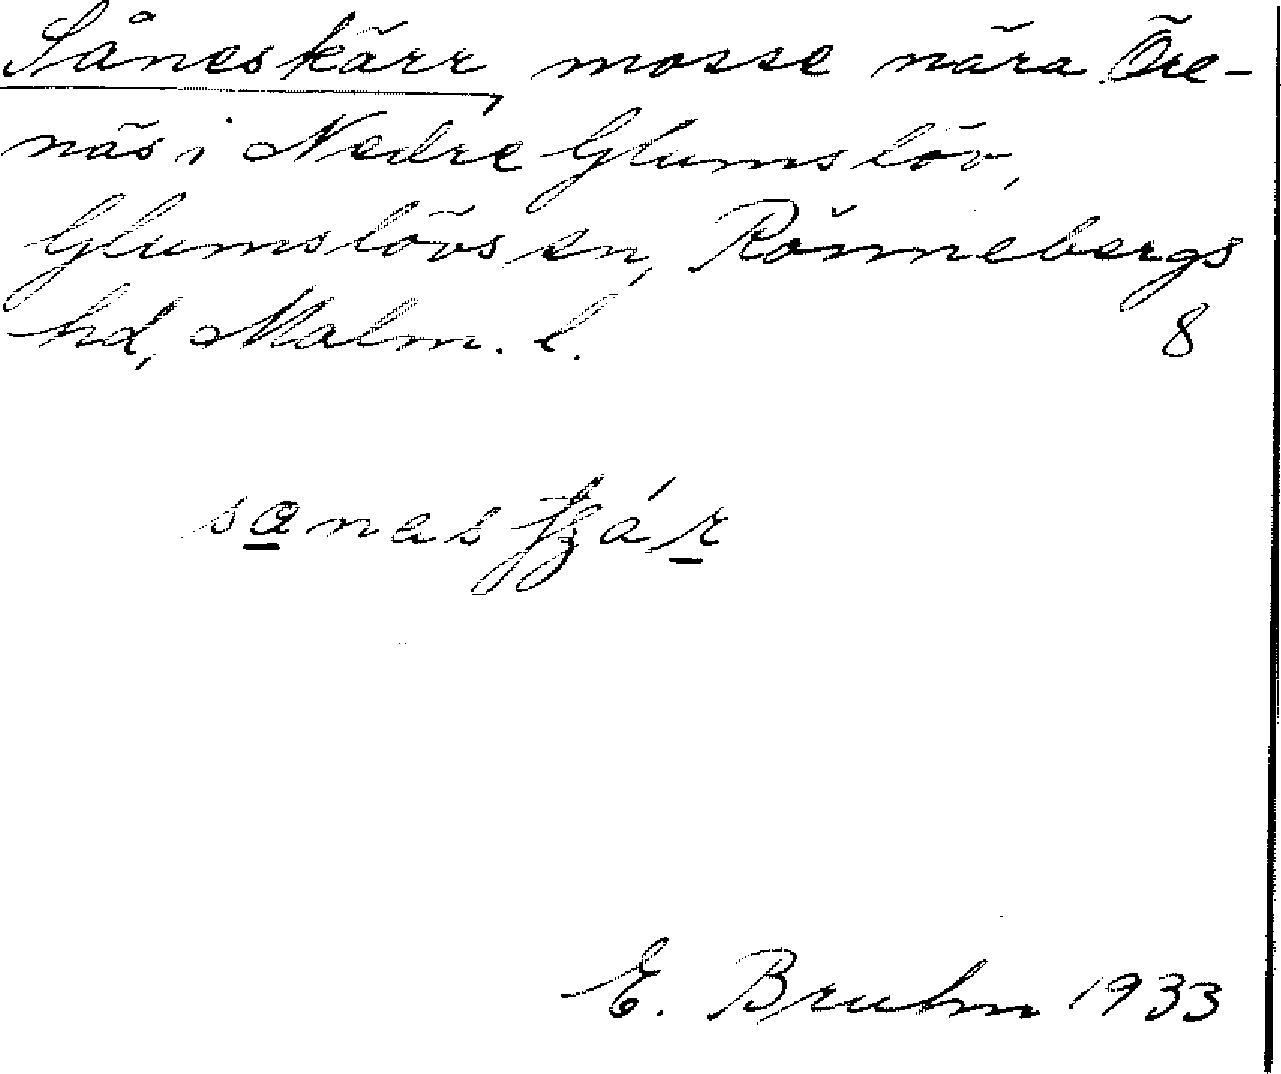 Såneskärr, mosse nära Öre-
näs i Nedre Glumslöv,
Glumslövs sn, Rönnebergs
hd, Malm. l. 8
E. Bruhn 1933